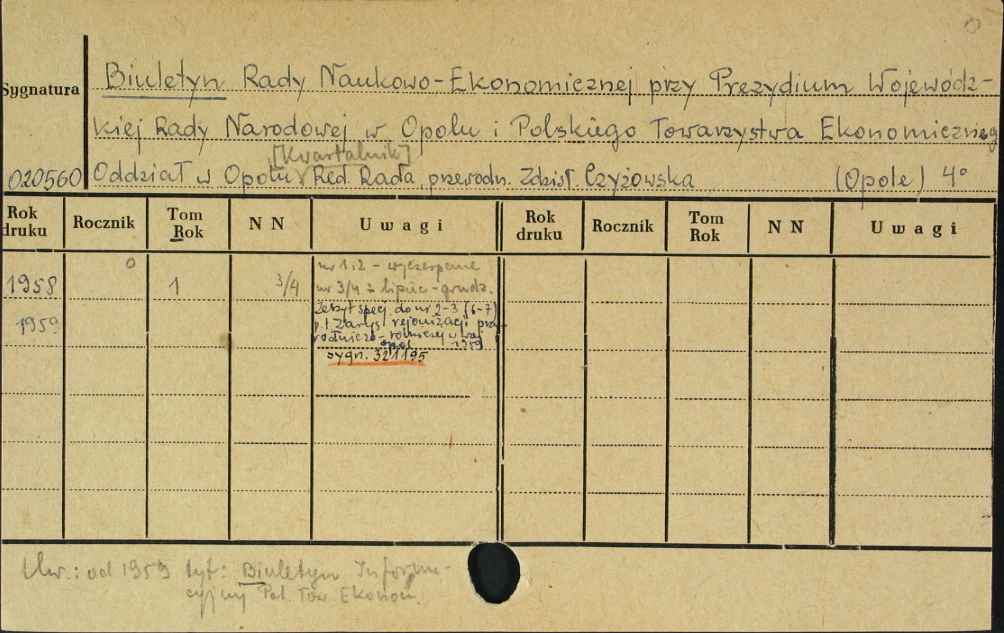 Biuletyn Rady Naukowo-Ekonomicznej przy Prezydium Wojewódz-
Sygnatura
kiej Rady Narodowej w Opolu i Polskiego Towarzystwa Ekonomicznego
[Kwartalnik]
020560 Oddział w Opolu Red. Rada, przewodn. Zdzisł. Czyżowska (Opole) 4°
Rok druku Rocznik Tom Rok N N Uwagi Rok druku Rocznik Tom Rok N N Uwagi
1958 0 1 3/4 nr 1.2 - wyczerpane
nr 3/4 = lipiec - grudz.
1959 Zeszyt spec. do nr 2-3 (6-7)
p.t Zarys rejonizacji przy-
rodniczo-rolniczej w woj
opol 1959
sygn. 321195
Uw.: od 1959 tyt: Biuletyn Informa-
cyjny Pol. Tow. Ekonom.